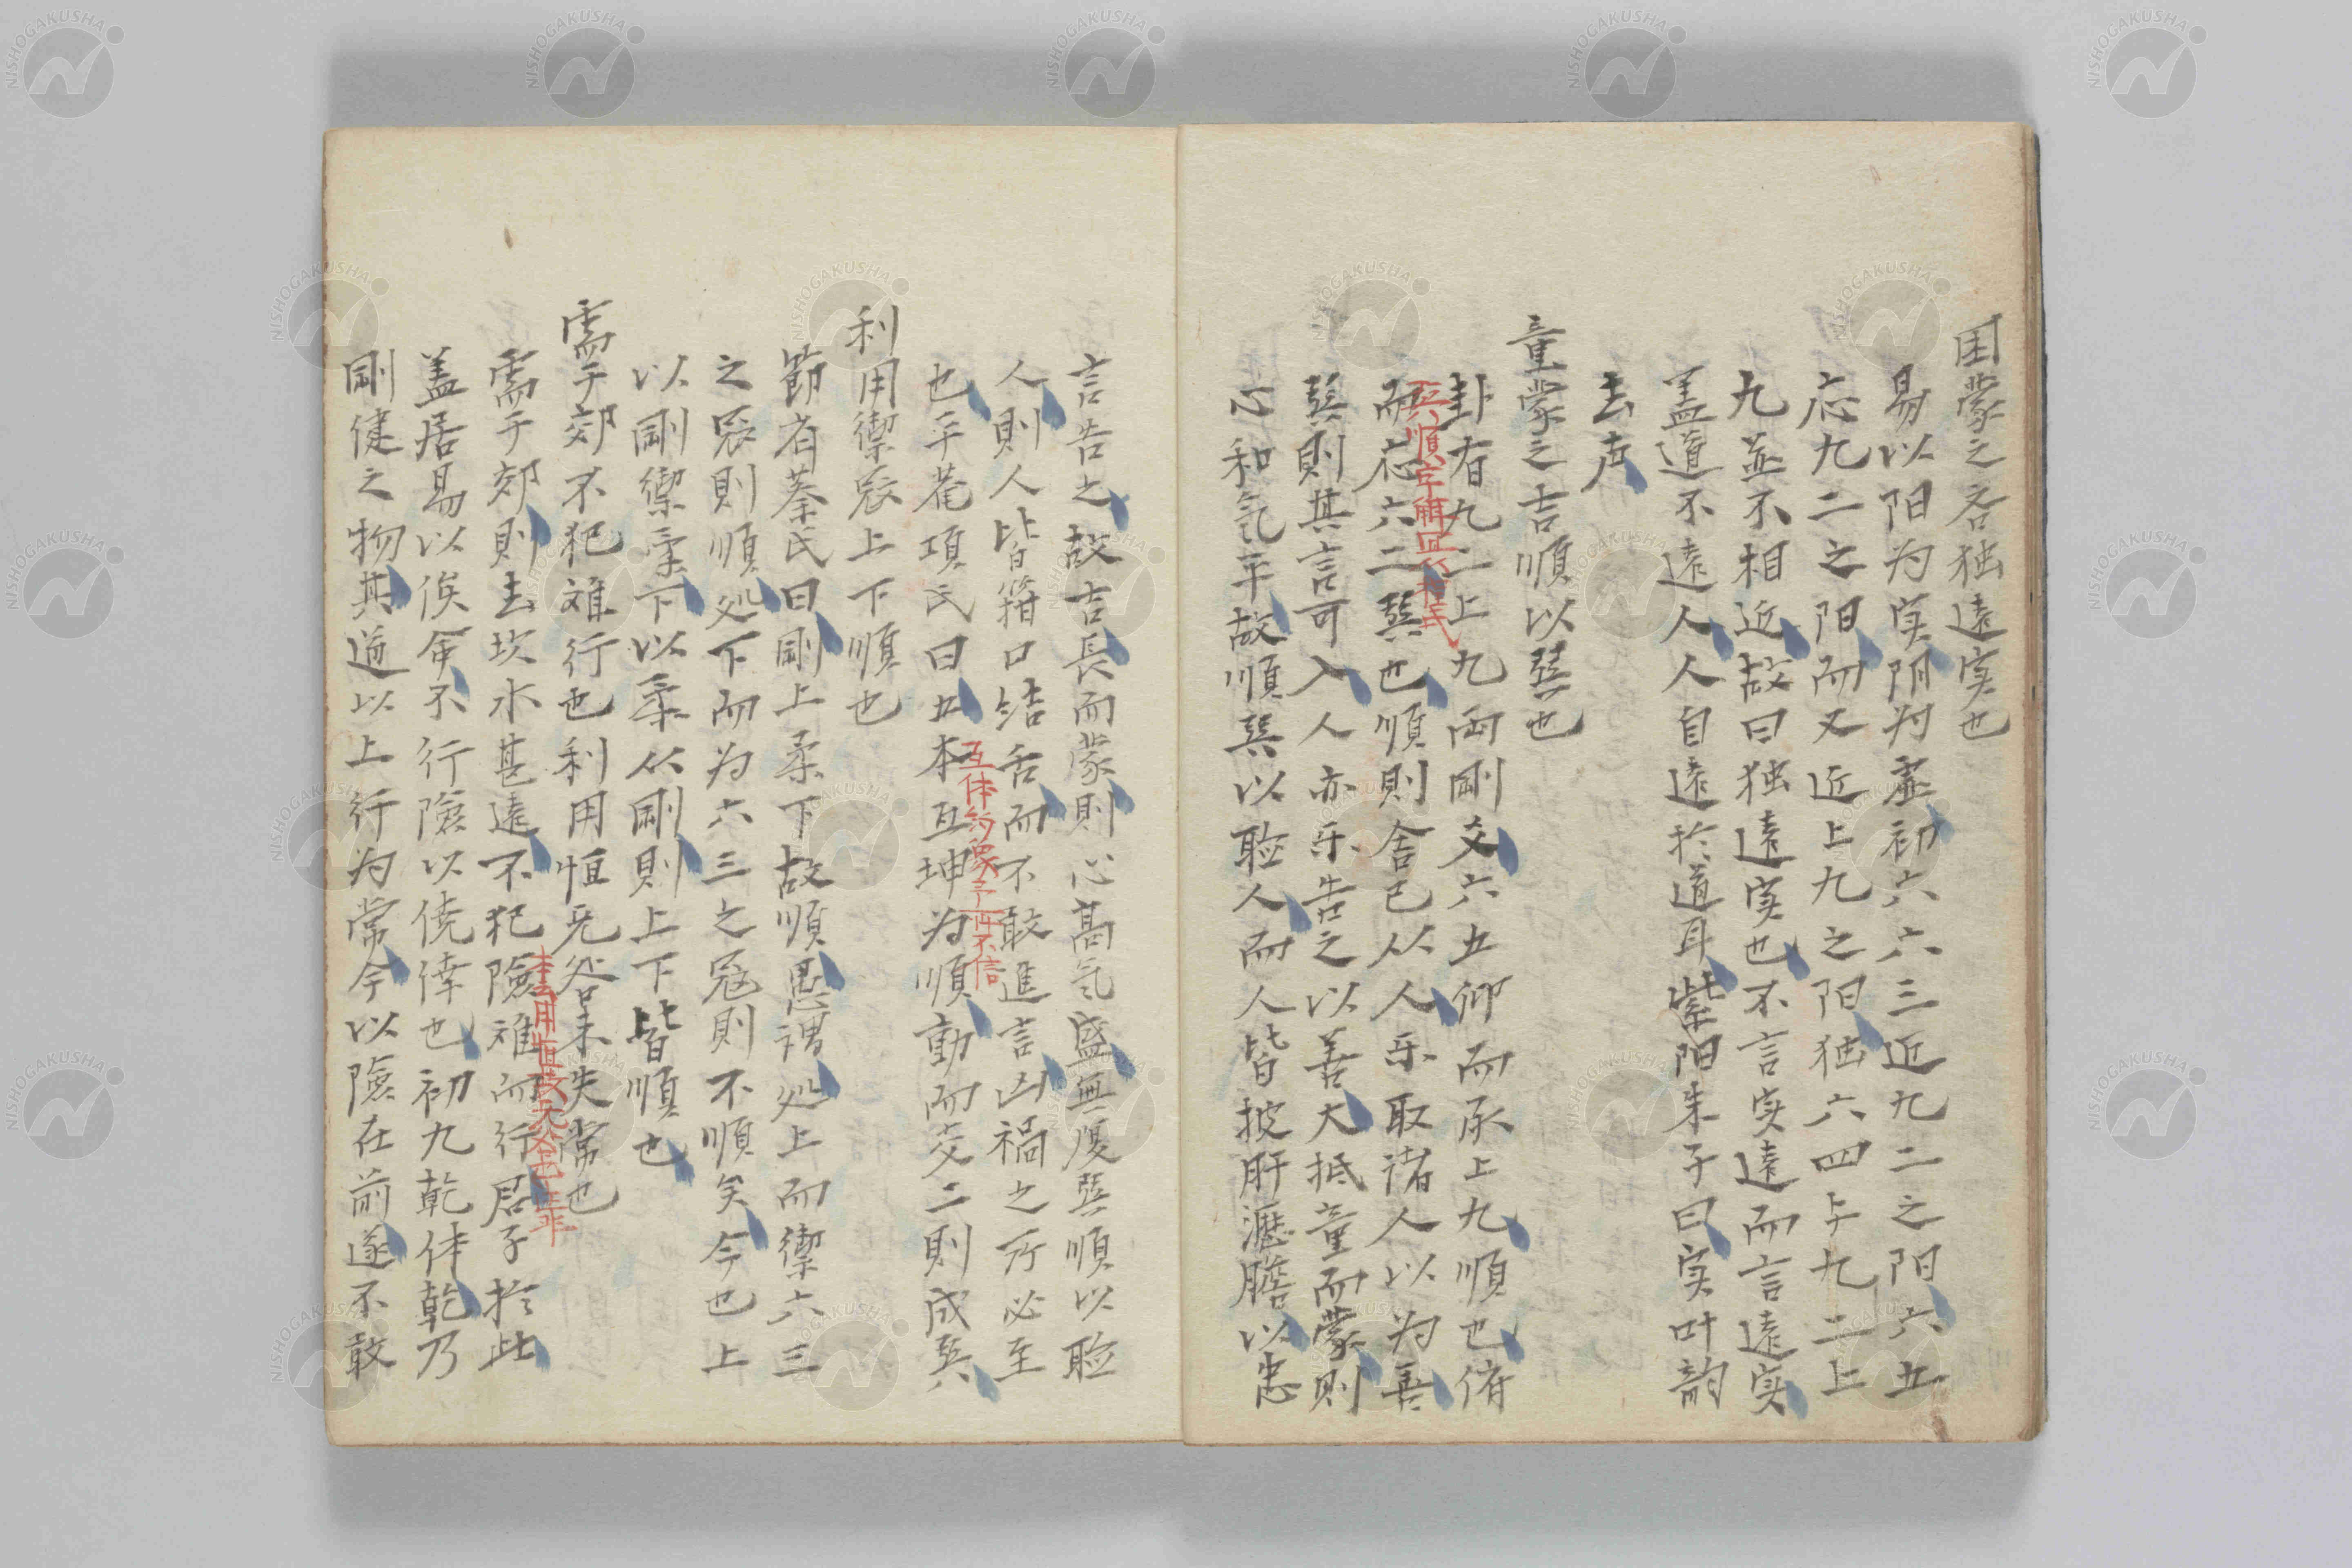 困蒙之吝独遠実也
易以阳为実阴为虚初六六三近九二之阳六五
応九二之阳而又近上九之阳独六四与九二上
九並不相近故曰独遠実也不言実遠而言遠実
盖道不遠人人自遠於道耳紫阳朱子曰実叶韵
去声
童蒙之吉順以巽也
卦有九二上九两剛爻六五仰而承上九順也俯
而応六二巽也順則舎己从人乐取諸人以为善
巽則其言可入人亦乐告之以善大抵童而蒙則
心和気平故順巽以聆人而人皆披肝瀝膽以忠
言告之故吉長而蒙則心髙気盛無復巽順以聆
人則人皆箝口結舌而不敢進言凶禍之所必至
互体約象予所不信
也平菴項氏曰五本互坤为順動而爻二則成巽
利用禦寇上下順也
節斉蔡氏曰剛上柔下故順愚謂処上而禦六三
之寇則順処下而为六三之寇則不順矣今也上
以剛禦柔下以柔从剛則上下皆順也
需于郊不犯难行也利用恒无咎未失常也
需于郊則去坎水甚遠不犯險难而行君子於此
盖居易以俟命不行險以侥倖也初九乾体乾乃
剛健之物其道以上行为常今以險在前遂不敢